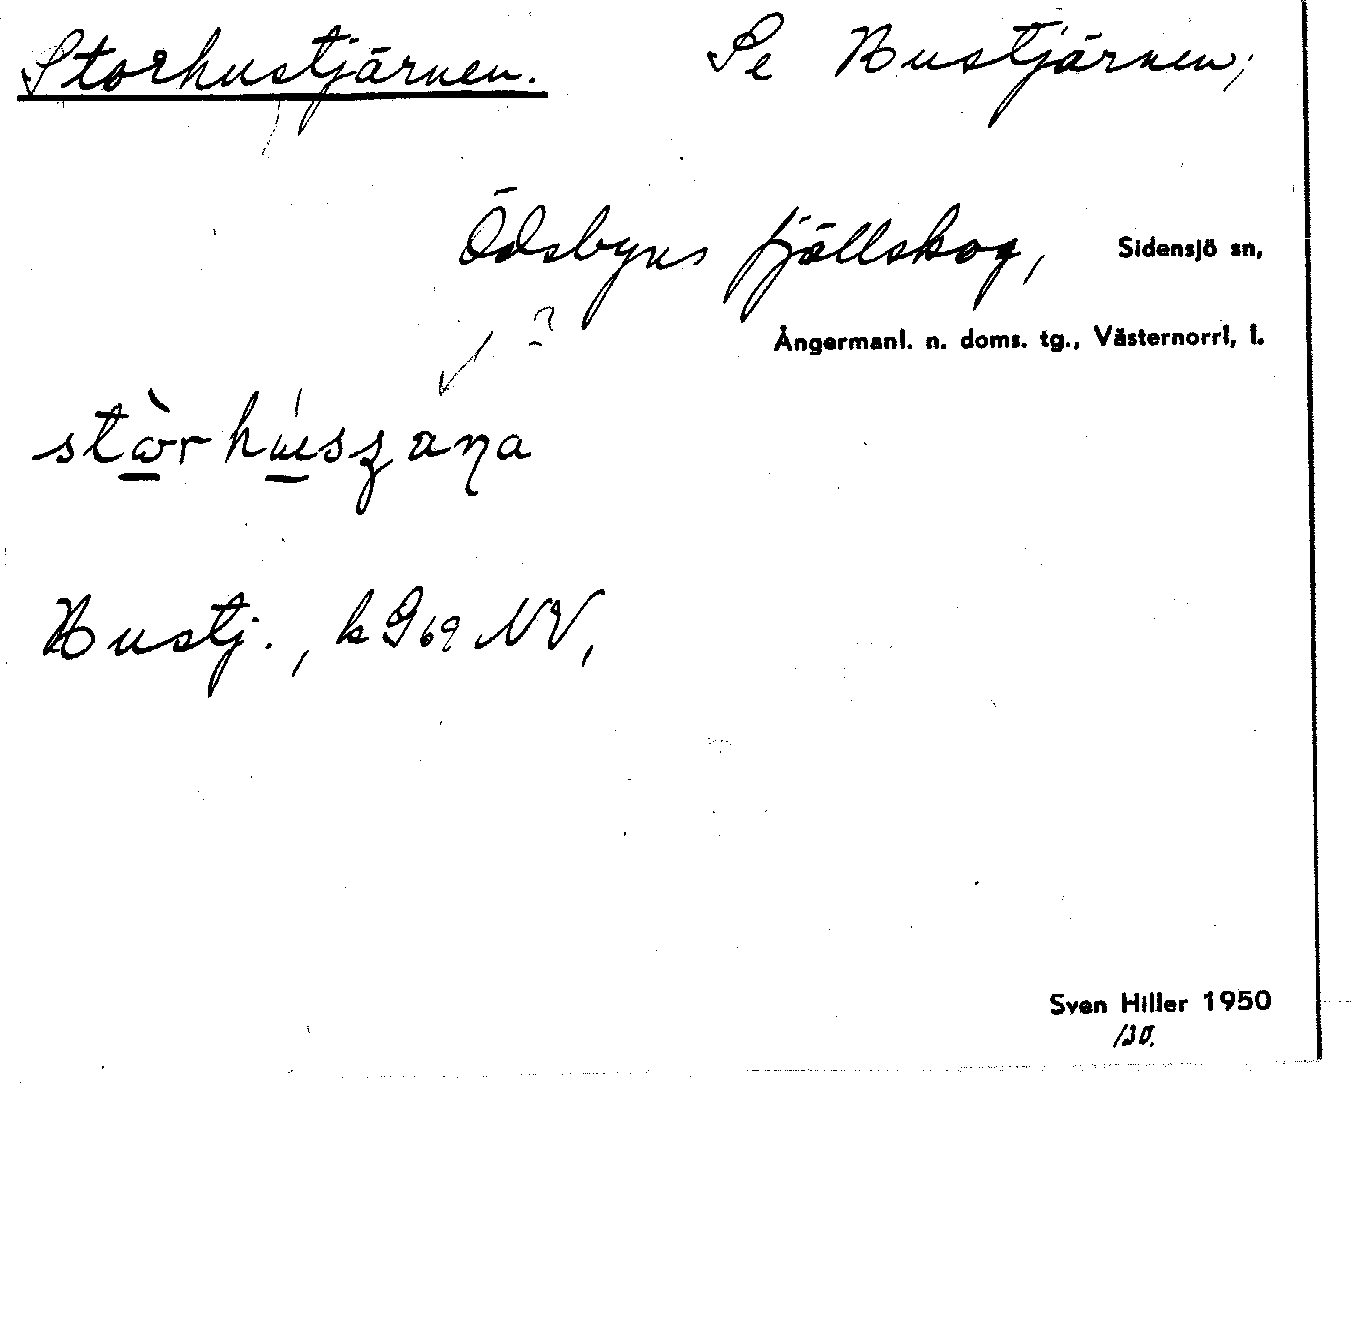 Storhustjärnen. Se Hustjärnen,
Ödsbyns fjällskog, Sidensjö sn,
Ångermanl. n. doms. tg., Västernorrl. l.
?
Hustj., k G69 NV,
Sven Hiller 1950